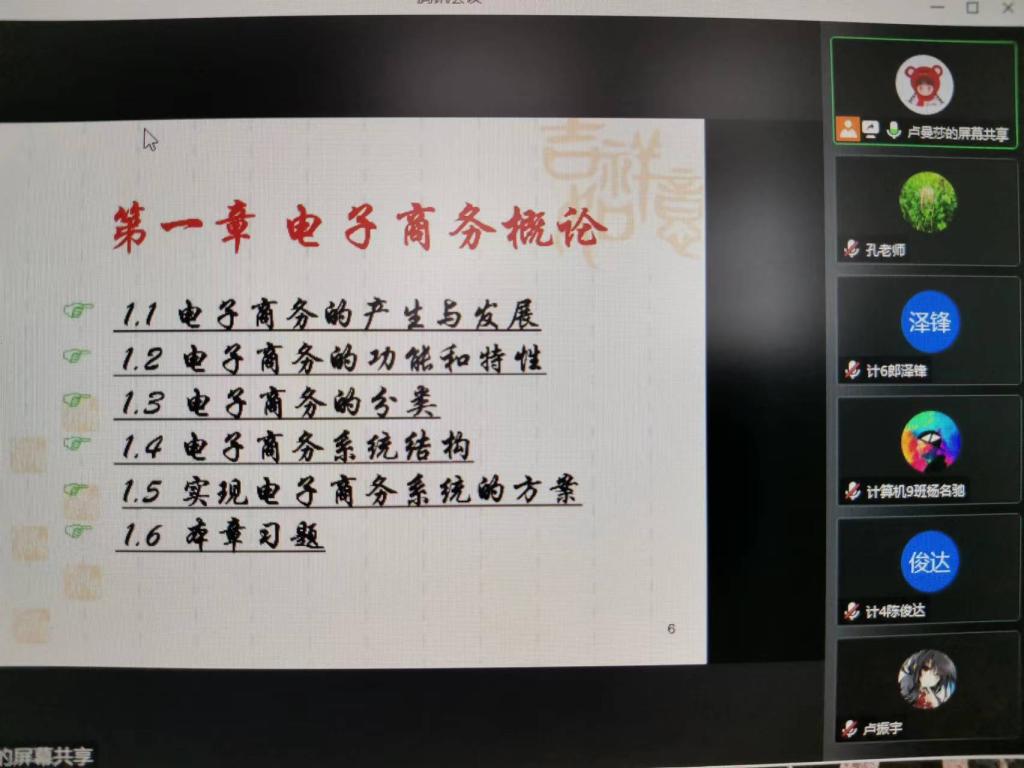 第一章 电子商务概论
1.1 电子商务的产生与发展
1.2 电子商务的功能和特性
1.3 电子商务的分类
1.4 电子商务系统结构
1.5 实现电子商务系统的方案
1.6 本章习题
6
吉祥如意
卢曼莎的屏幕共享
孔老师
泽锋
计6郎泽锋
计算机9班杨名驰
俊达
计4陈俊达
卢振宇
的屏幕共享